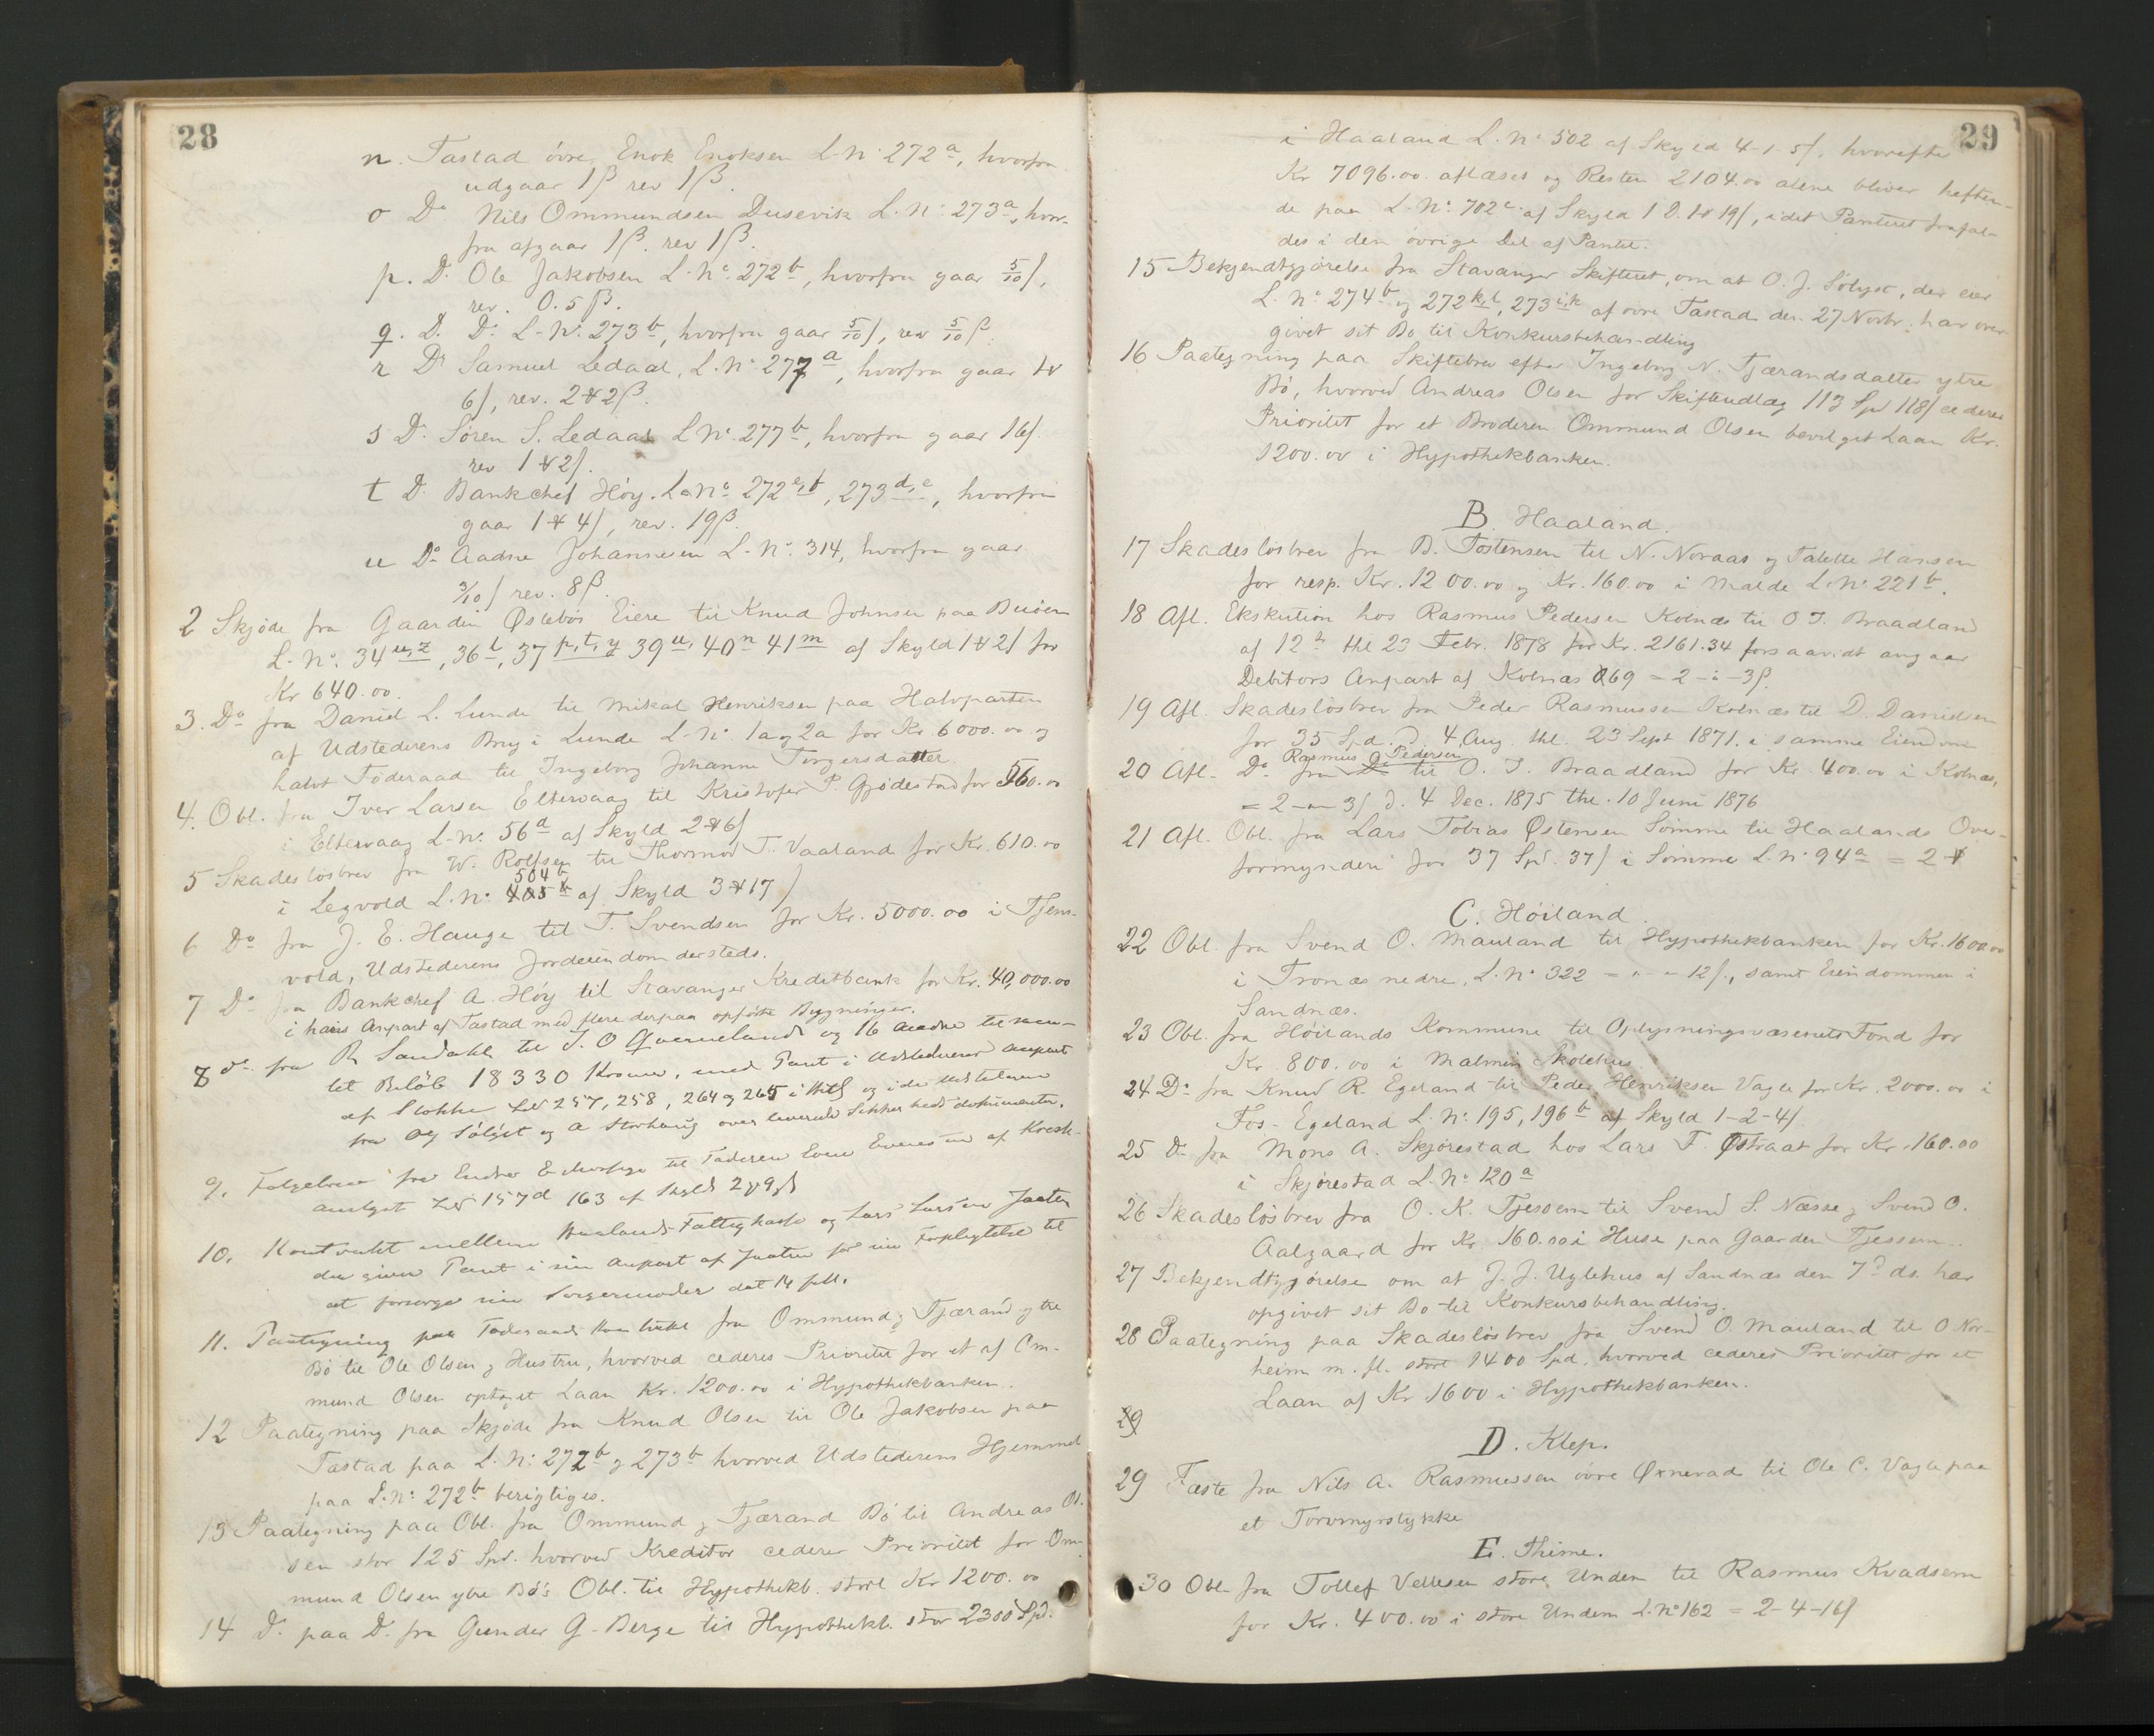 28
n. Tastad övre, Enok Enoksen L-No 272a, hvorfra
udgaar 1β rev 1β.
o Do Nils Ommundsen Dusevik L. No 273a, hvor-
fra afgaar 1β. rev 1β.
p. Do Ole Jakobsen L. No 272b, hvorfra gaar 5/10 β,
rev. 0.5β.
q. D. Do L-No 273b, hvorfra gaar 5/10 β, rev 5/10 β.
r Do Samuel Ledaal, L. No 277a, hvorfra gaar
6β, rev. 2 ₰ 2β.
s Do Sören S. Ledaal L No. 277b, hvorfra gaar 16β.
rev 1 ₰ 2β.
t D. Bankchef Höy. L. No 272e,f, 273d,e, hvorfra
gaar 1 ₰ 4β, rev. 19β.
u Do Aadne Johannesen L-No 314, hvorfra gaar
3/10 β rev. 8β.
2 Skjöde fra Gaarden Östebös Eiere til Knud Johnsen paa Buöen
L. No. 34u,z, 36t, 37p,t,y 39u, 40n 41m af Skyld 1 ₰ 2β for
Kr 640.00.
3. Do fra Daniel L. Lunde til Mikal Henriksen paa Halvparten
af Udstederens Brug i Lunde L-No 1a og 2a for Kr 6000.00 og
halvt Föderaad til Ingeborg Johanne Torgersdatter.
4. Obl. fra Iver Larsen Eltervaag til Kristofer P. Gjödestad for 560.00
i Eltervaag L-No. 56a af Skyld 2 ₰ 6β
5 Skadeslösbrev fra W. Rolfsen til Thormod T. Vaaland for Kr. 610.00
504b
i Legvold L. No af Skyld 3 ₰ 17β
6 Do fra J. E. Hauge til T. Svendsen for Kr. 5000.00 i Tjens-
vold, Udstederens Jordeiendom dersteds.
7 Do fra Bankchef A. Höy til Stavanger Kreditbank for Kr. 40,000.00
i hans Anpart af Tastad med flere derpaa opförte Bygninger.
8 do fra R Sandahl til T. O Qverneland og 16 andre til sam-
let Belöb 18330 Kroner, med Pant i Udstederens anpart
af Stokke LNo 257, 258, 264 og 265 i Hitl og i de Udstederen
fra Og Sölyst og A Storhaug over leverede Sikkerheds dokumenter.
9. Fölgebrev fra Endre Endresen til Faderen Even Evensen af
anslyst LNo 157d 163 af Skyld 2 ₰ 9β
10. Kontrakt mellem Haalands Fattigkasse og Lars Larsen Jaatten
der giver Pant i sin Anpart af Jaatten for sin Forpligtelse til
at forsörge sin Svigermoder dat 14 full.
11. Paategning paa Föderaads Kontrakt fra Ommund og Tjærand ytre
Bö til Ole Olsen og Hustru, hvorved cederes Prioritet for et af Om-
mund Olsen optaget Laan Kr. 1200.00 i Hypothekbanken.
12 Paategning paa Skjöde fra Knud Olsen til Ole Jakobsen paa
Tastad paa L. No: 272b og 273b hvorved Udstederens Hjemmel
paa L. No: 272b berigtiges.
13 Paategning paa Obl. fra Ommund og Tjærand Bö til Andreas Ol-
sen stor 125 Spd. hvorved Kreditor cederer Prioritet for Om-
mund Olsen ytre Bö's Obl. til Hypothekb. stort Kr 1200.00
14 Do paa Do fra Gunder G. Berge til Hypothekb. stor 2300 Spd.
29
i Haaland L. No 502 af Skyld 4-1-5β, hvorefter
Kr 7096.00 aflæses og Resten 2104.00 alene bliver heften-
de paa L. No. 702c af Skyld 1 D. 1 ₰ 19β, idet Panteret frafal-
des i den övrige Del af Pantet.
15 Bekjendtgjörelse fra Stavanger Skifteret, om at O. J. Sölyst, der eier
L. No 274b og 272k,l, 273i,k af övre Tastad den 27 Novbr. har over-
givet sit Bo til Konkursbehandling
16 Paategning paa Skiftebrev efter Ingeborg N. Tjærandsdatter ytre
Bö, hvorved Andreas Olsen for Skifteudlæg 113 Spd 118β cederer
Prioritet for et Broderen Ommund Olsen bevilget Laan Kr.
1200.00 i Hypothekbanken.
B. Haaland.
17 Skadeslösbrev fra B. Tostensen til N. Noraas og Talette Hansen
for resp. Kr. 1200.00 og Kr. 160.00 i Malde L. No 221b.
18 Afl. Ekskution hos Rasmus Pedersen Kolnæs til O T. Braadland
af 12te thl 23 Febr. 1878 for Kr. 2161.34 forsaavidt angaar
Debitors Anpart af Kolnæs 69 = 2-1-3β.
19 Afl. Skadeslösbrev fra Peder Rasmussen Kolnæs til D. Danielsen
for 35 Spd. d. 4 Aug. thl. 23 Sept 1871. i samme Eiendom
Rasmus Pedersen
20 Afl. Do fra til O. T. Braadland for Kr. 400.00 i Kolnæs,
= 2 - " - 3β d. 4 Dec. 1875 thl. 10 Juni 1876
21 Afl. Obl. fra Lars Tobias Östensen Sömme til Haalands Over-
formynderi for 37 Spd. 37β i Sömme L. No 94a = 2 ₰
C. Höiland.
22 Obl. fra Svend O. Mauland til Hypothekbanken for Kr. 1600.00
i Tronæs nedre, L. No 322 = " - " 12β., samt Eiendommen i
Sandnæs.
23 Obl. fra Höilands Kommune til Oplysningsvæsenets Fond for
Kr. 800.00 i Malmin Skolehus.
24. Do fra Knud R. Egeland til Peder Henriksen Vagle for Kr. 2000.00 i
Fos-Egeland L. No: 195, 196b af Skyld 1-2-4β.
25 Do fra Mons A. Skjörestad hos Lars T. Östraat for Kr. 160.00
i Skjörestad L. No: 120a
26 Skadeslösbrev fra O. K. Tjessem til Svend S. Næsse og Svend O.
Aalgaard for Kr 160.00 i Huse paa Gaarden Tjessem.
27 Bekjendtgjörelse om at J. J. Uglehus af Sandnæs den 7de ds. har
opgivet sit Bo til Konkursbehandling.
28 Paategning paa Skadeslösbrev fra Svend O. Mauland til O Nor-
heim m. fl. stort 1400 Spd, hvorved cederes Prioritet for et
Laan af Kr 1600 i Hypothekbanken.
29
D. Klep.
29 Fæste fra Nils A. Rasmussen övre Öxnevad til Ole C. Vagle paa
et Torvmyrstykke
E. Thime.
30 Obl. fra Tollef Vellesen store Undem til Rasmus Kvadsem
for Kr. 400.00 i store Undem L. No 162 = 2-4-16β